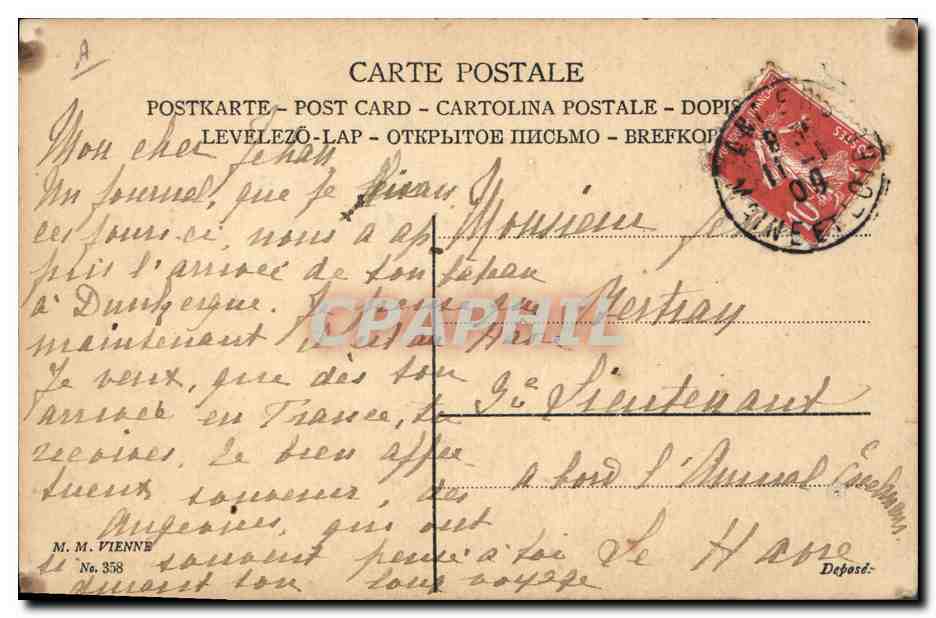 A
CARTE POSTALE
POSTKARTE – POST CARD – CARTOLINA POSTALE – DOPIS
LEVELEZŐ-LAP – ОТКРЫТОЕ ПИСЬМО – BREFKOR
10
8
11 - 1
09
MAINE ET LOIRE
Mon cher Jehan
Un journal, que je lisais
ces jours-ci, nous a ap
pris l'arrivée de ton bateau
à Dunkerque.
maintenant
Je veux, que dès ton
arrivée en France, tu
reçoives, le bien affec
tueux souvenir, des
Angevines, qui ont
si souvent pensé à toi
durant ton long voyage
Monsieur
de Bernay
3e Lieutenant
a bord l'Amiral
Le Havre
CPAPHIL
M. M. VIENNE
No. 358
Deposé: